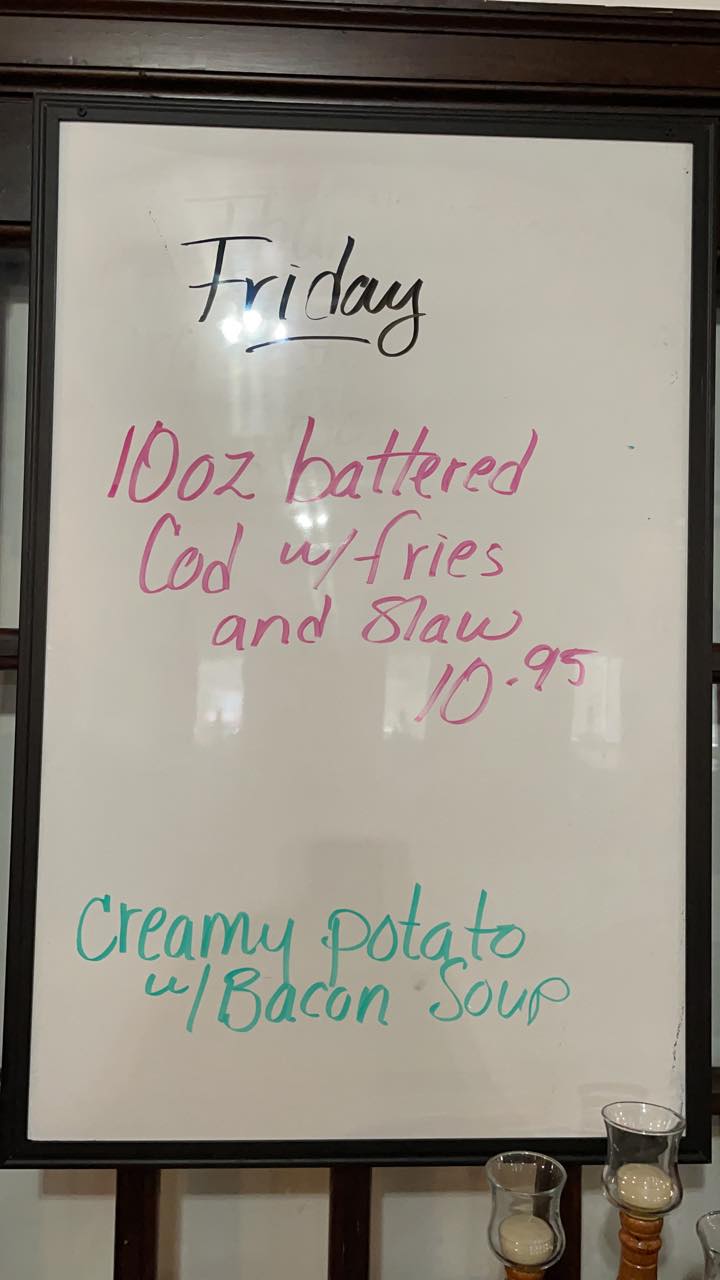 Friday
10oz battered
Cod w/fries
and Slaw
10.95
Creamy potato
w/Bacon Soup